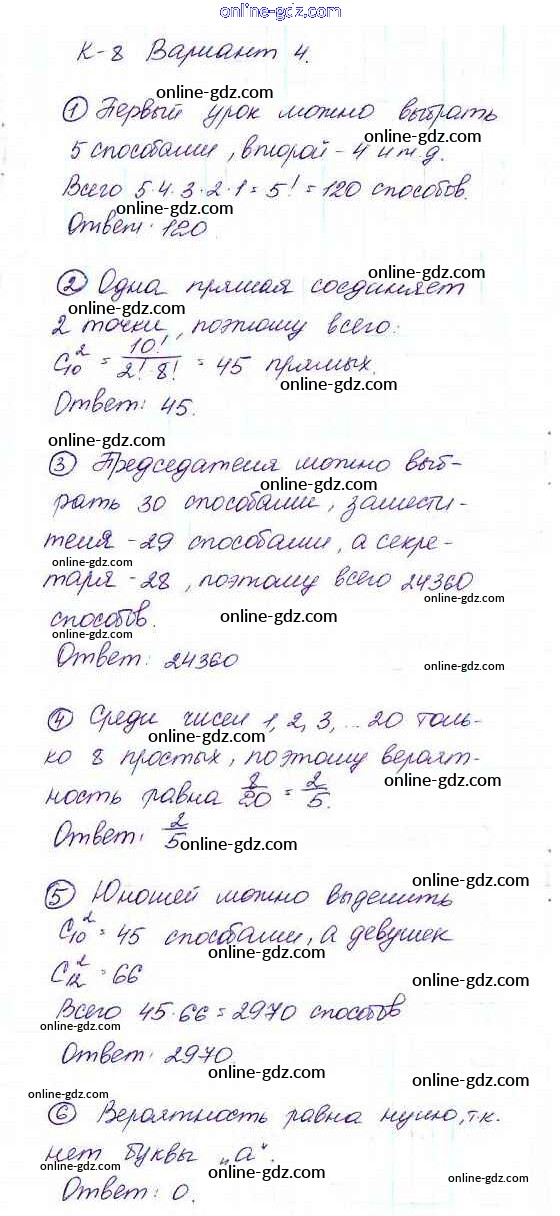 online-gdz.com
К-8 Вариант 4.
online-gdz.com
① Первый урок можно выбрать
online-gdz.com
5 способами, второй - 4 и т.д.
online-gdz.com
Всего 5·4·3·2·1 = 5! = 120 способов.
online-gdz.com
Ответ: 120
online-gdz.com
② Одна прямая соединяет
online-gdz.com
2 точки, поэтому всего:
online-gdz.com
C₁₀² = 10!/2!8! = 45 прямых.
online-gdz.com
Ответ: 45.
online-gdz.com
③ Председателя можно выб-
online-gdz.com
рать 30 способами, замести-
online-gdz.com
теля - 29 способами, а секре-
online-gdz.com
таря - 28, поэтому всего 24360
online-gdz.com
способов.
online-gdz.com online-gdz.com
Ответ: 24360
online-gdz.com
④ Среди чисел 1, 2, 3, ... 20 толь-
online-gdz.com
ко 8 простых, поэтому вероят-
online-gdz.com
ность равна 8/20 = 2/5.
Ответ: 2/5
online-gdz.com
online-gdz.com
⑤ Юношей можно выделить
online-gdz.com
C₁₀² = 45 способами, а девушек
C₁₂² = 66
online-gdz.com
Всего 45·66 = 2970 способов
online-gdz.com
Ответ: 2970.
online-gdz.com
online-gdz.com
online-gdz.com
⑥ Вероятность равна нулю, т.к.
online-gdz.com
нет буквы „а“.
online-gdz.com
online-gdz.com
Ответ: 0.
online-gdz.com